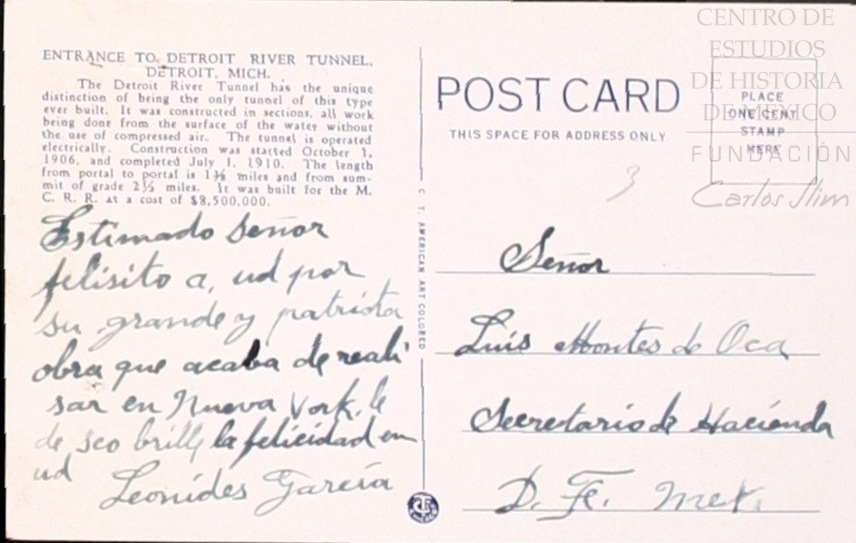 ENTRANCE TO DETROIT RIVER TUNNEL,
DETROIT, MICH.
The Detroit River Tunnel has the unique
distinction of being the only tunnel of this type
ever built. It was constructed in sections, all work
being done from the surface of the water without
the use of compressed air. The tunnel is operated
electrically. Construction was started October 1,
1906, and completed July 1, 1910. The length
from portal to portal is miles and from sum-
mit of grade miles. It was built for the M.
C. R. R. at a cost of $8,500,000.
Estimado Señor
felisito a, ud por
su grande y patriota
obra que acaba de reali
sar en Nueva York, le
de seo brille la felicidad en
ud
Leonides García
C. T. AMERICAN ART COLORED
POST CARD
THIS SPACE FOR ADDRESS ONLY
PLACE
ONE CENT
STAMP
HERE
3
Señor
Luis Montes de Oca
Secretario de Hacienda
D. Fe. Mex.
CENTRO DE
ESTUDIOS
DE HISTORIA
DE MÉXICO
FUNDACIÓN
Carlos Slim